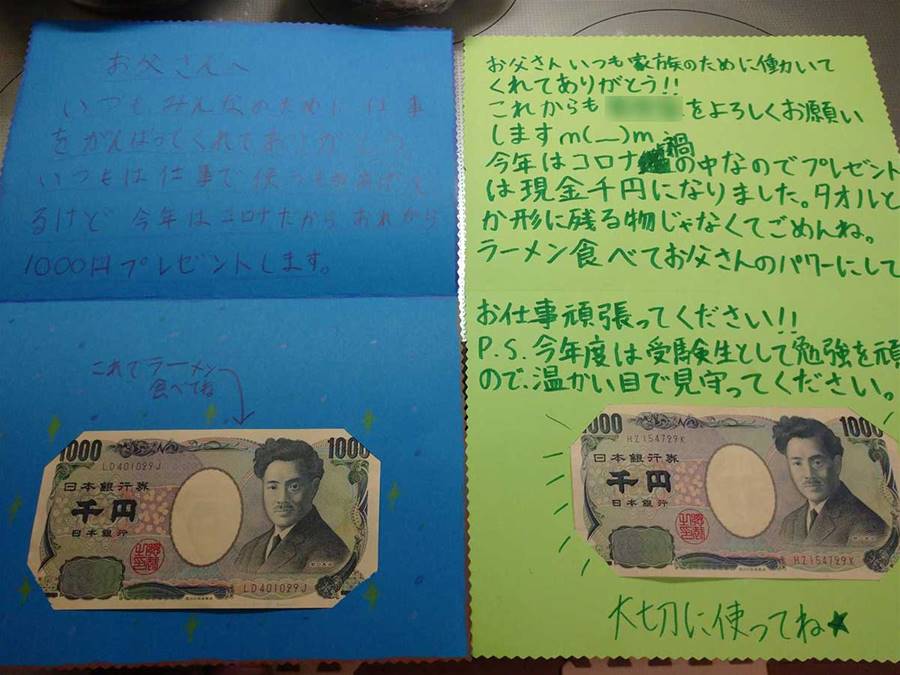 お父さんへ
いつもみんなのために仕事
をがんばってくれてありがとう。
いつもは仕事で使うものあげて
るけど 今年はコロナだからおれから
1000円プレゼントします。
これでラーメン
食べてね
1000
1000
LD401029J
日本銀行券
千円
日本銀行
LD401029J
お父さんいつも家族のために働いて
くれてありがとう!!
これからも
をよろしくお願い
しますm(__)m
今年はコロナ禍の中なのでプレゼント
は現金千円になりました。タオルと
か形に残る物じゃなくてごめんね。
ラーメン食べてお父さんのパワーにして
お仕事頑張ってください!!
P.S.今年度は受験生として勉強を頑
ので、温かい目で見守ってください。
1000
1000
HZ154729K
日本銀行券
千円
日本銀行
HZ154729K
大切に使ってね★